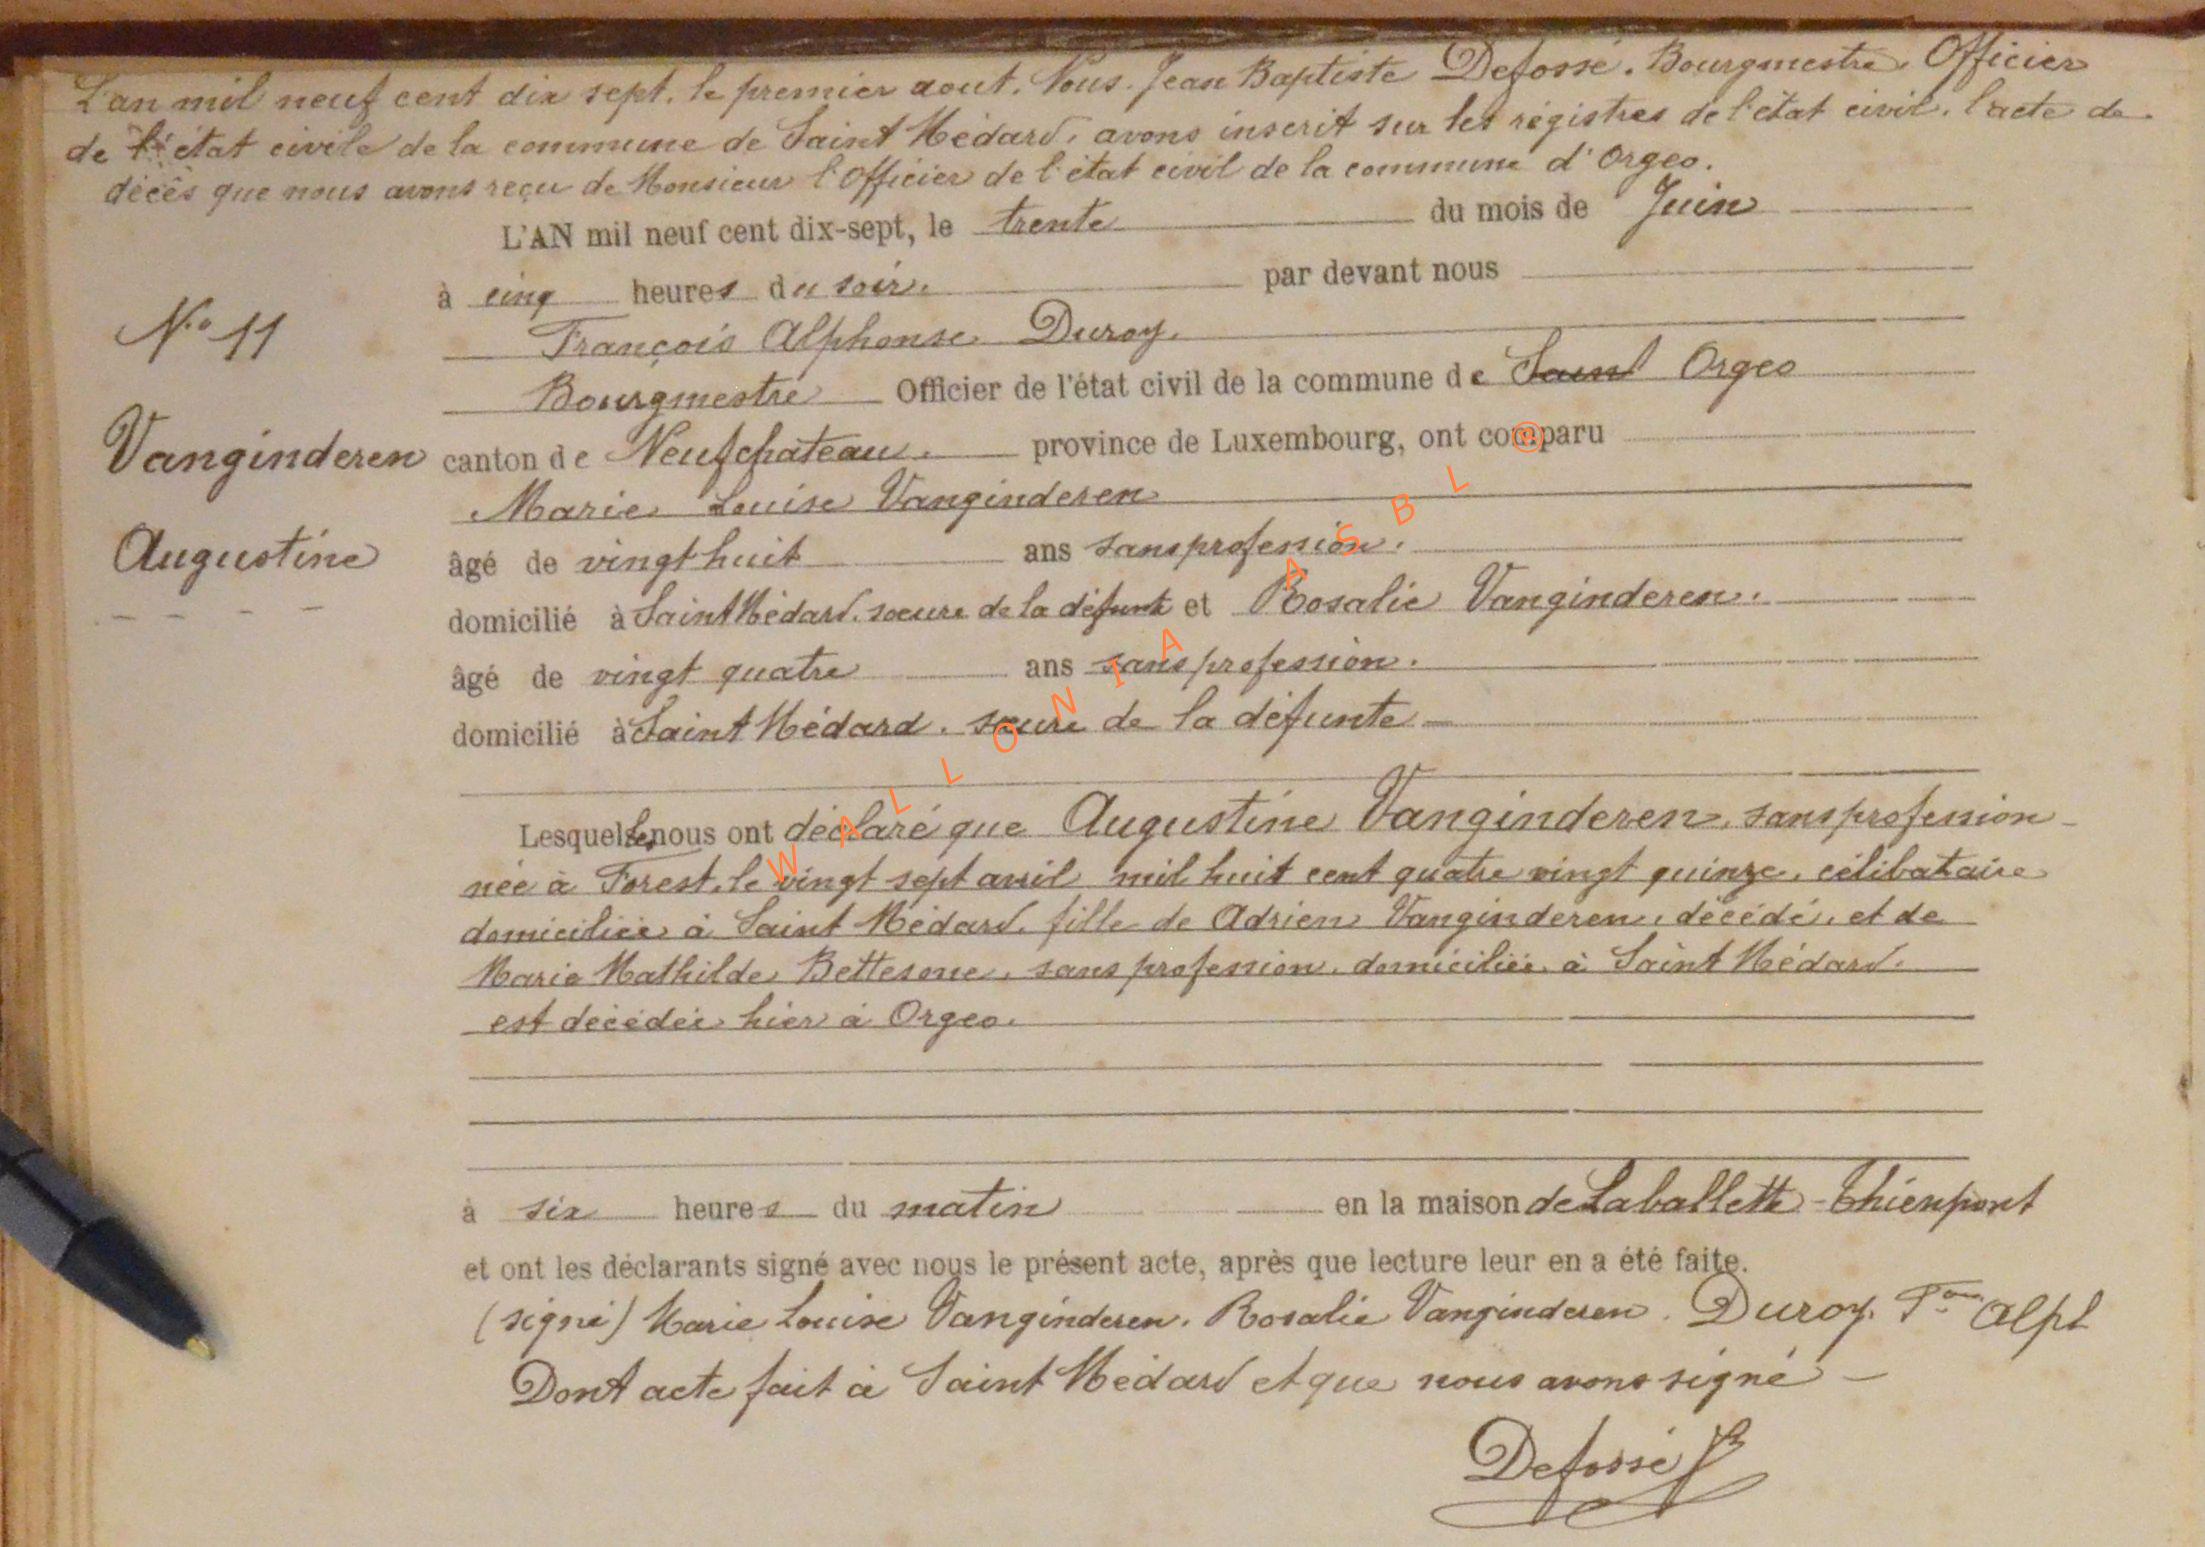 L'an mil neuf cent dix sept, le premier aout. Nous. Jean Baptiste Defossé. Bourgmestre. Officier
de l'état civile de la commune de Saint Médard, avons inscrit sur les régistres de l'état civil, l'acte de
décès que nous avons reçu de Monsieur l'Officier de l'état civil de la commune d'Orgeo.
L'AN mil neuf cent dix-sept, le trente du mois de Juin
à cinq heures du soir. par devant nous
N° 11
François Alphonse Duroy.
Bourgmestre Officier de l'état civil de la commune de Saint Orgeo
Vanginderen canton de Neufchateau. province de Luxembourg, ont comparu
Marie Louise Vanginderen
Augustine
âgé de vingt huit ans sans profession.
domicilié à Saint Médard. soeure de la défunte et Rosalie Vanginderen.
âgé de vingt quatre ans sans profession.
domicilié à Saint Médard. soeure de la défunte
Lesquelles nous ont déclaré que Augustine Vanginderen, sans profession
née à Forest, le vingt sept avril mil huit cent quatre vingt quinze, célibataire
domiciliée à Saint Médard, fille de Adrien Vanginderen, décédé, et de
Marie Mathilde Bettesone, sans profession, domiciliée à Saint Médard.
est décédée hier à Orgeo.
à six heures du matin en la maison de Laballette-Thienpont
et ont les déclarants signé avec nous le présent acte, après que lecture leur en a été faite.
(signé) Marie Louise Vanginderen. Rosalie Vanginderen. Duroy. Fçois Alph
Dont acte fait à Saint Médard et que nous avons signé
Defossé JB
WALLONIA ASBL ®